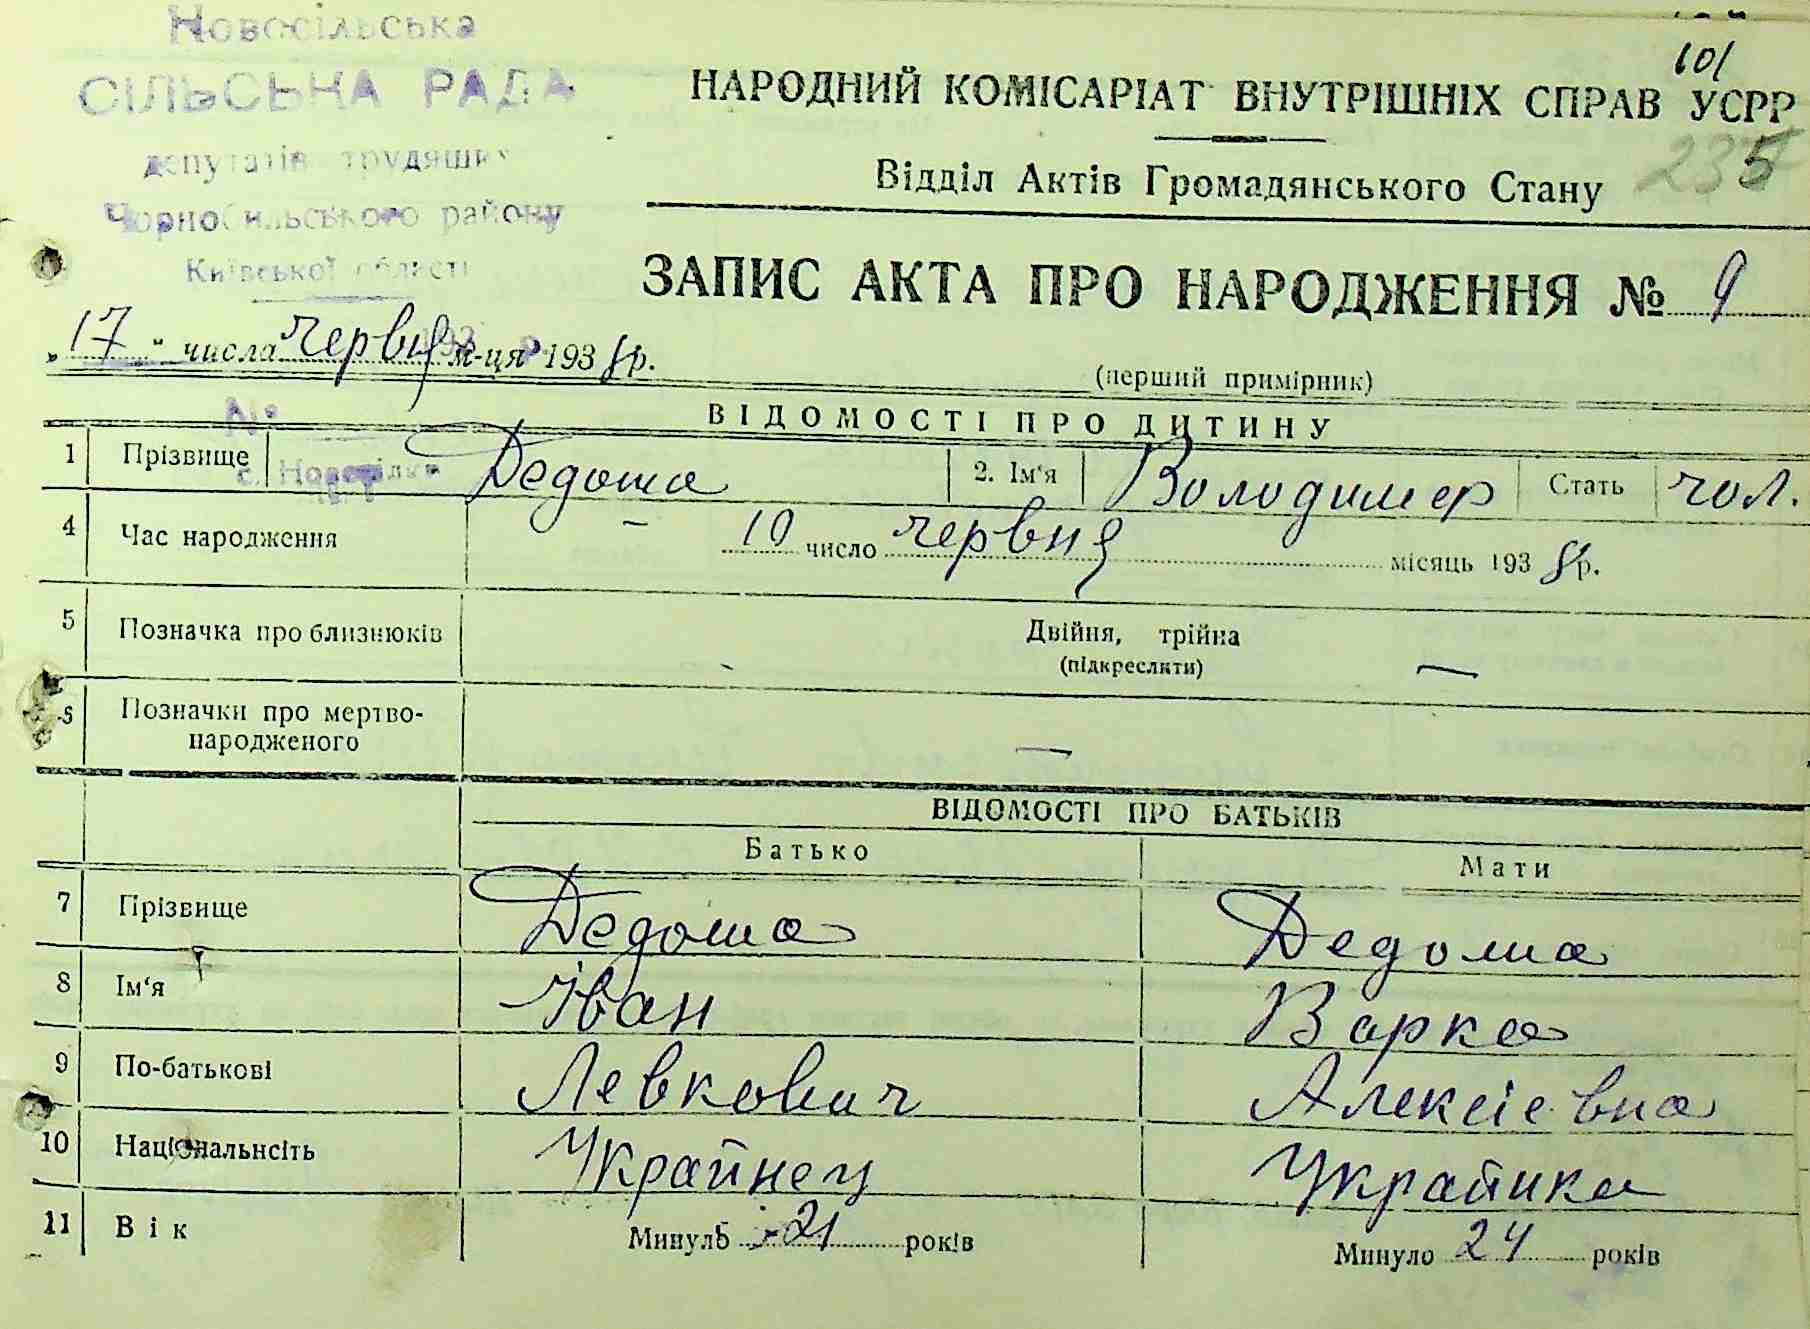 Новосільська
СІЛЬСЬКА РАДА
депутатів трудящих
Чорнобильського району
Київської області
101
НАРОДНИЙ КОМІСАРІАТ ВНУТРІШНІХ СПРАВ УСРР
235
Відділ Актів Громадянського Стану
ЗАПИС АКТА ПРО НАРОДЖЕННЯ № 9
„17" числа червня м-ця 1938 р.
(перший примірник)
№
ВІДОМОСТІ ПРО ДИТИНУ
1 Прізвище Дедоша 2. Ім'я Володимер Стать чол.
4 Час народження 10 число червня місяць 1938 р.
5 Позначка про близнюків Двійня, трійна —
(підкреслити)
6 Позначки про мертво-
народженого —
ВІДОМОСТІ ПРО БАТЬКІВ
Батько Мати
7 Прізвище Дедоша Дедоша
8 Ім'я Іван Варка
9 По-батькові Левкович Алексієвна
10 Національнсіть Украйнец Украйнка
11 Вік Минуло 21 років Минуло 24 років